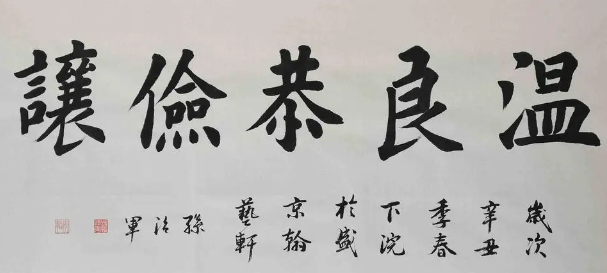 温良恭儉讓
歲次
辛丑
季春
下浣
於盛
京翰
藝軒
孫
軍